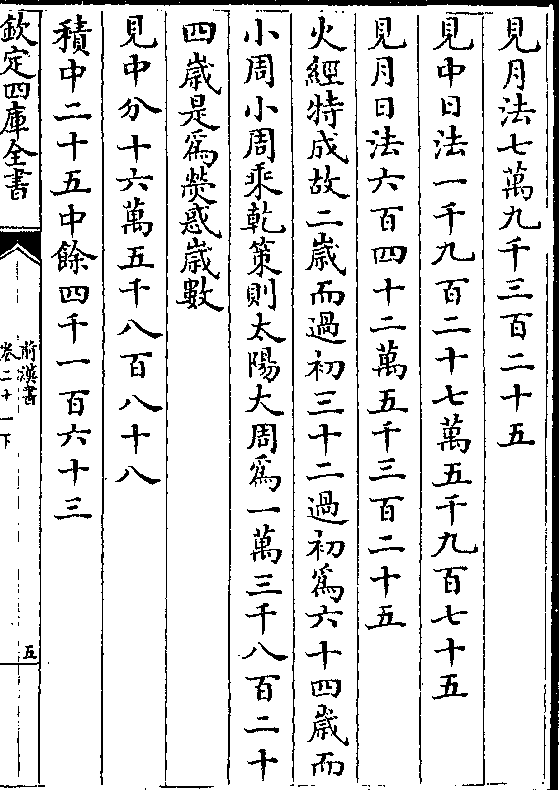 見月法七萬九千三百二十五
見中日法一千九百二十七萬五千九百七十五
見月日法六百四十二萬五千三百二十五
火經特成故二歲而過初三十二過初爲六十四歲而
小周小周乘乾策則太陽大周爲一萬三千八百二十
四歲是爲熒惑歲數
見中分十六萬五千八百八十八
積中二十五中餘四千一百六十三
欽定四庫全書
前漢書
卷二十一下
五